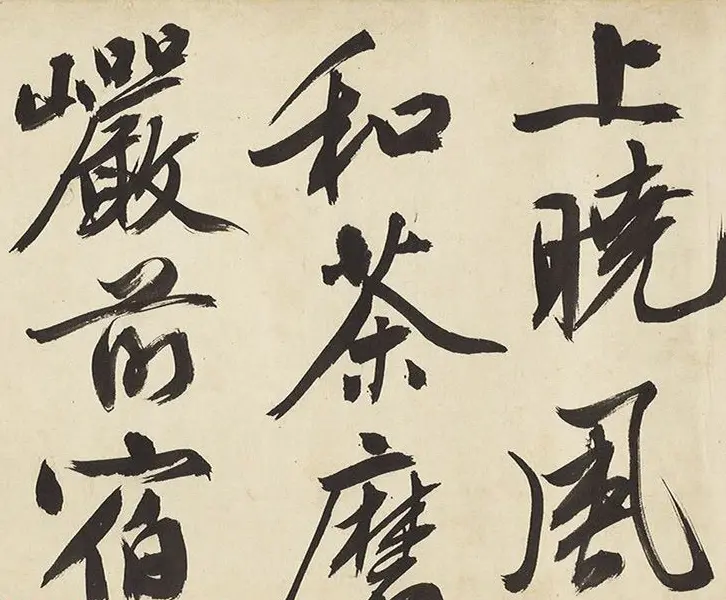 上曉風
和茶磨
巖前宿